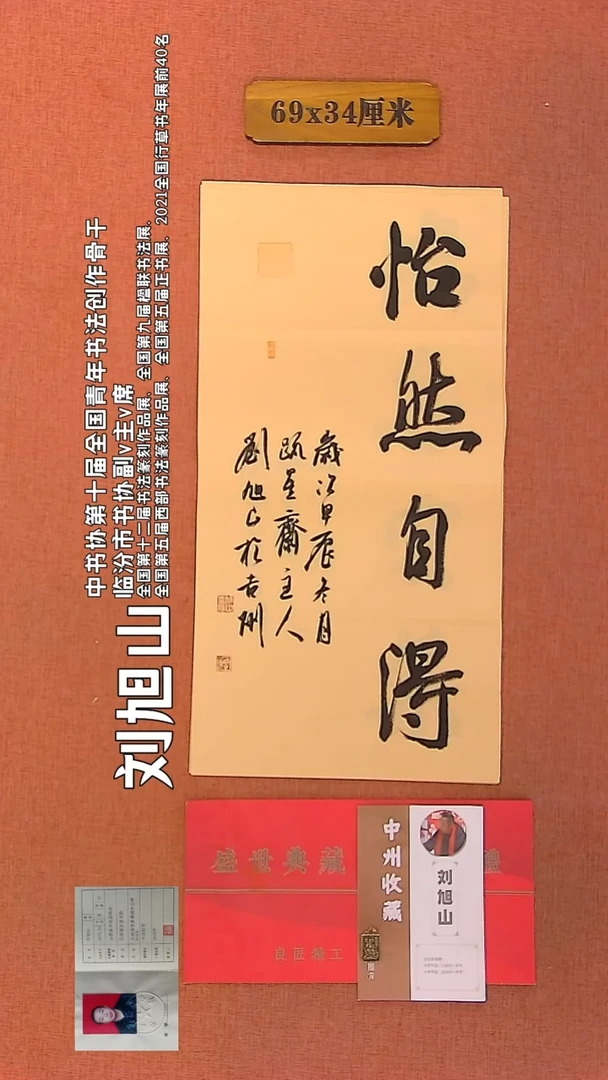 69x34厘米
怡然自得
歲次甲辰冬月
跂星齋主人
劉旭山於吉州
刘旭山
中书协第十届全国青年书法创作骨干
临汾市书协副v主v席
全国第十二届书法篆刻作品展、全国第九届楹联书法展、
全国第五届西部书法篆刻作品展、全国第五届正书展、2021全国行草书年展前40名
盛世典藏
禮
良匠精工
中州收藏
刘旭山